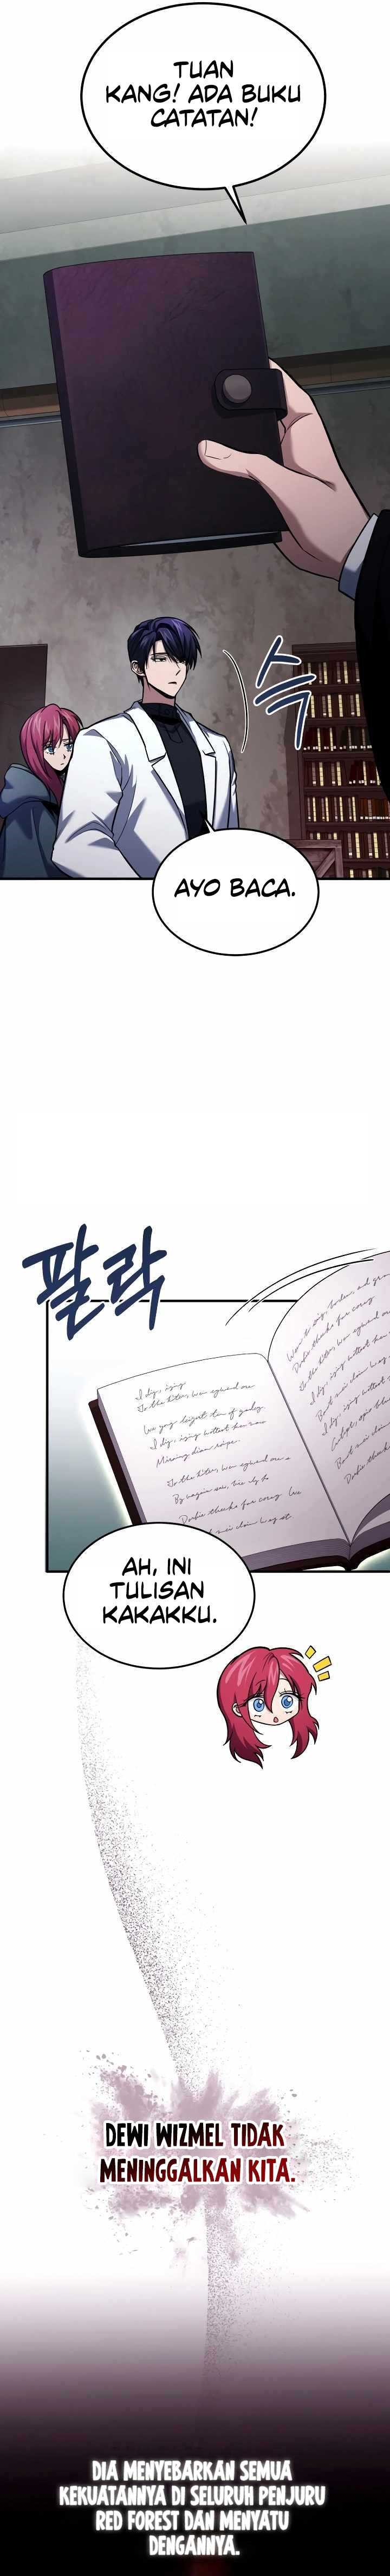 TUAN
KANG! ADA BUKU
CATATAN!
슥
AYO BACA.
팔락
AH, INI
TULISAN
KAKAKKU.
DEWI WIZMEL TIDAK
MENINGGALKAN KITA.
DIA MENYEBARKAN SEMUA
KEKUATANNYA DI SELURUH PENJURU
RED FOREST DAN MENYATU
DENGANNYA.